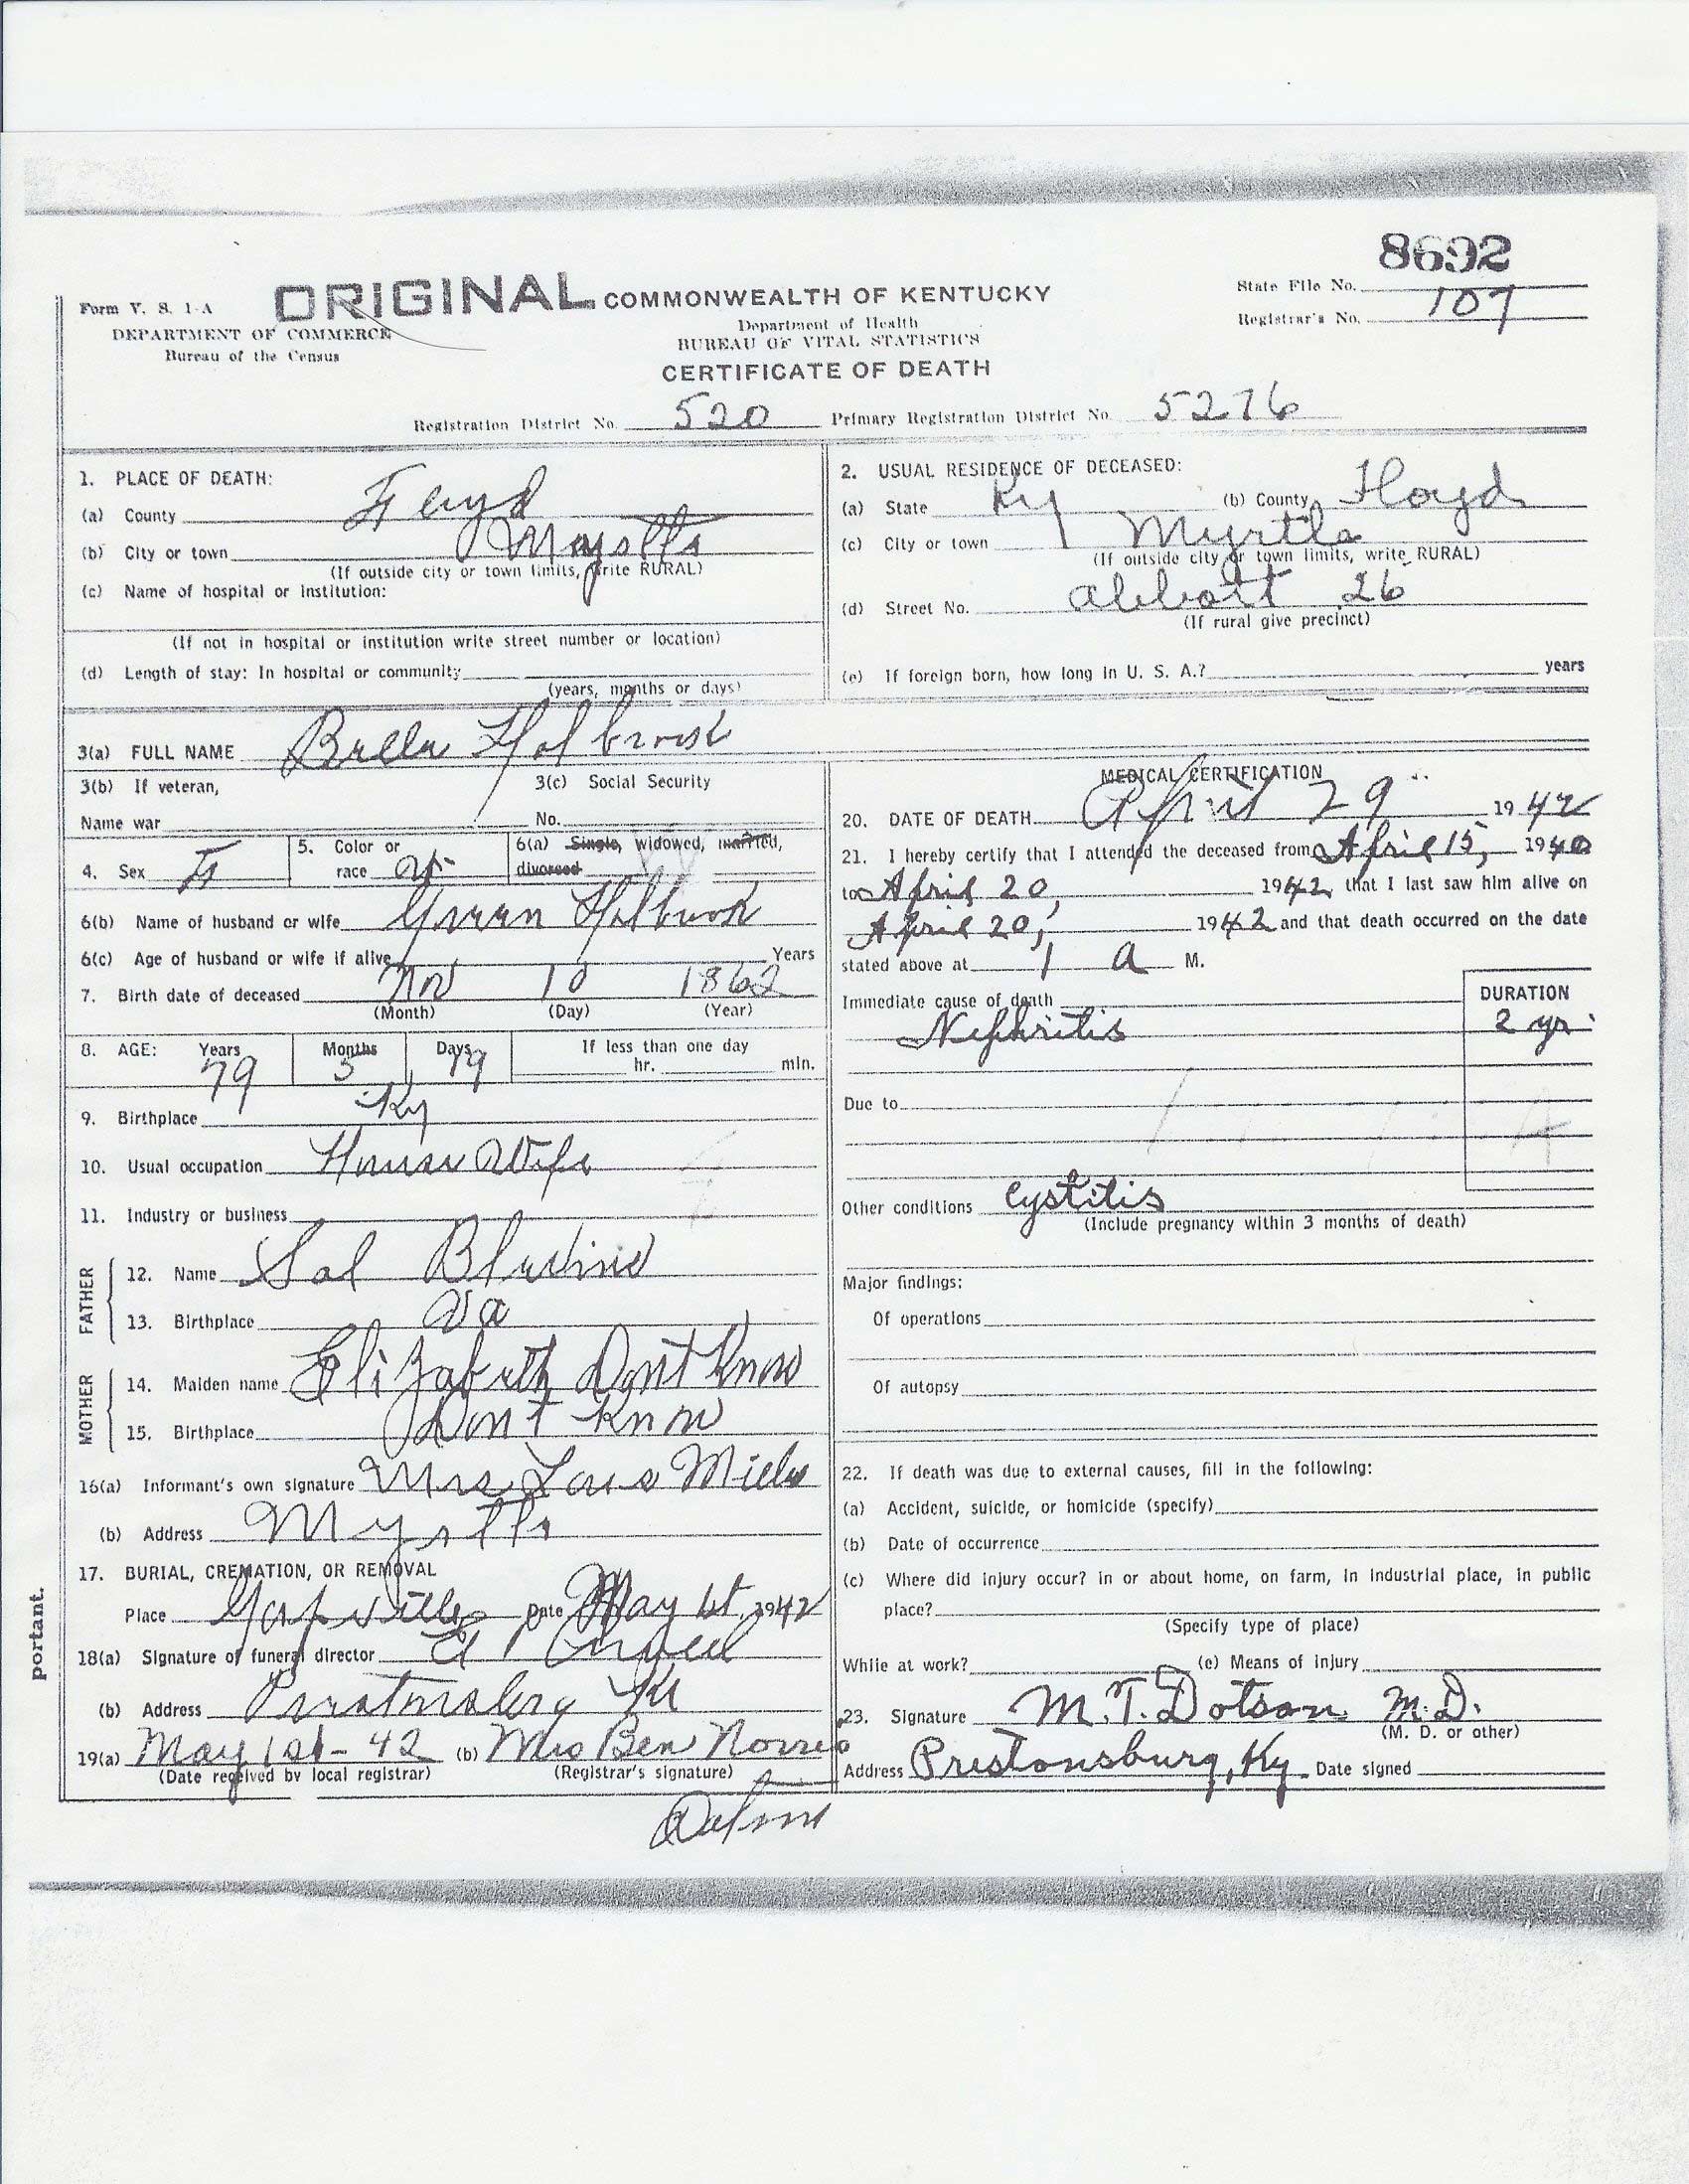 8692
Form V. S. 1-A ORIGINAL COMMONWEALTH OF KENTUCKY State File No.
DEPARTMENT OF COMMERCE Department of Health Registrar's No. 107
Bureau of the Census BUREAU OF VITAL STATISTICS
CERTIFICATE OF DEATH
Registration District No. 520 Primary Registration District No. 5276
1. PLACE OF DEATH:
(a) County Floyd
(b) City or town
(If outside city or town limits, write RURAL)
(c) Name of hospital or institution:
(If not in hospital or institution write street number or location)
(d) Length of stay: In hospital or community
(years, months or days)
2. USUAL RESIDENCE OF DECEASED:
(a) State Ky (b) County Floyd
(c) City or town Myrtle
(If outside city or town limits, write RURAL)
(d) Street No. Abbott 26
(If rural give precinct)
(e) If foreign born, how long in U. S. A.? years
3(a) FULL NAME Holbrook
3(b) If veteran, 3(c) Social Security
Name war No.
4. Sex F 5. Color or race W 6(a) Single, widowed, married, divorced
6(b) Name of husband or wife Holbrook
6(c) Age of husband or wife if alive Years
7. Birth date of deceased Nov 10 1862
(Month) (Day) (Year)
8. AGE: Years Months Days If less than one day
79 5 19 hr. min.
9. Birthplace Ky
10. Usual occupation House Wife
11. Industry or business
FATHER
12. Name Sol Blevins
13. Birthplace Va
MOTHER
14. Maiden name Elizabeth Dont Know
15. Birthplace Dont Know
16(a) Informant's own signature Mrs
(b) Address
17. BURIAL, CREMATION, OR REMOVAL
Place Gapville Date May 1st, 1942
18(a) Signature of funeral director
(b) Address Prestonsburg Ky
19(a) May 1st-42 (b) Mrs Ben Norris
(Date received by local registrar) (Registrar's signature)
MEDICAL CERTIFICATION
20. DATE OF DEATH April 29 1942
21. I hereby certify that I attended the deceased from April 15, 1940
to April 20, 1942 that I last saw him alive on
April 20, 1942 and that death occurred on the date
stated above at 1 a M.
Immediate cause of death DURATION
Nephritis 2 yr.
Due to
Other conditions Cystitis
(Include pregnancy within 3 months of death)
Major findings:
Of operations
Of autopsy
22. If death was due to external causes, fill in the following:
(a) Accident, suicide, or homicide (specify)
(b) Date of occurrence
(c) Where did injury occur? in or about home, on farm, in industrial place, in public
place?
(Specify type of place)
While at work? (e) Means of injury
23. Signature M. T. Dotson M.D.
(M. D. or other)
Address Prestonsburg, Ky. Date signed
portant.